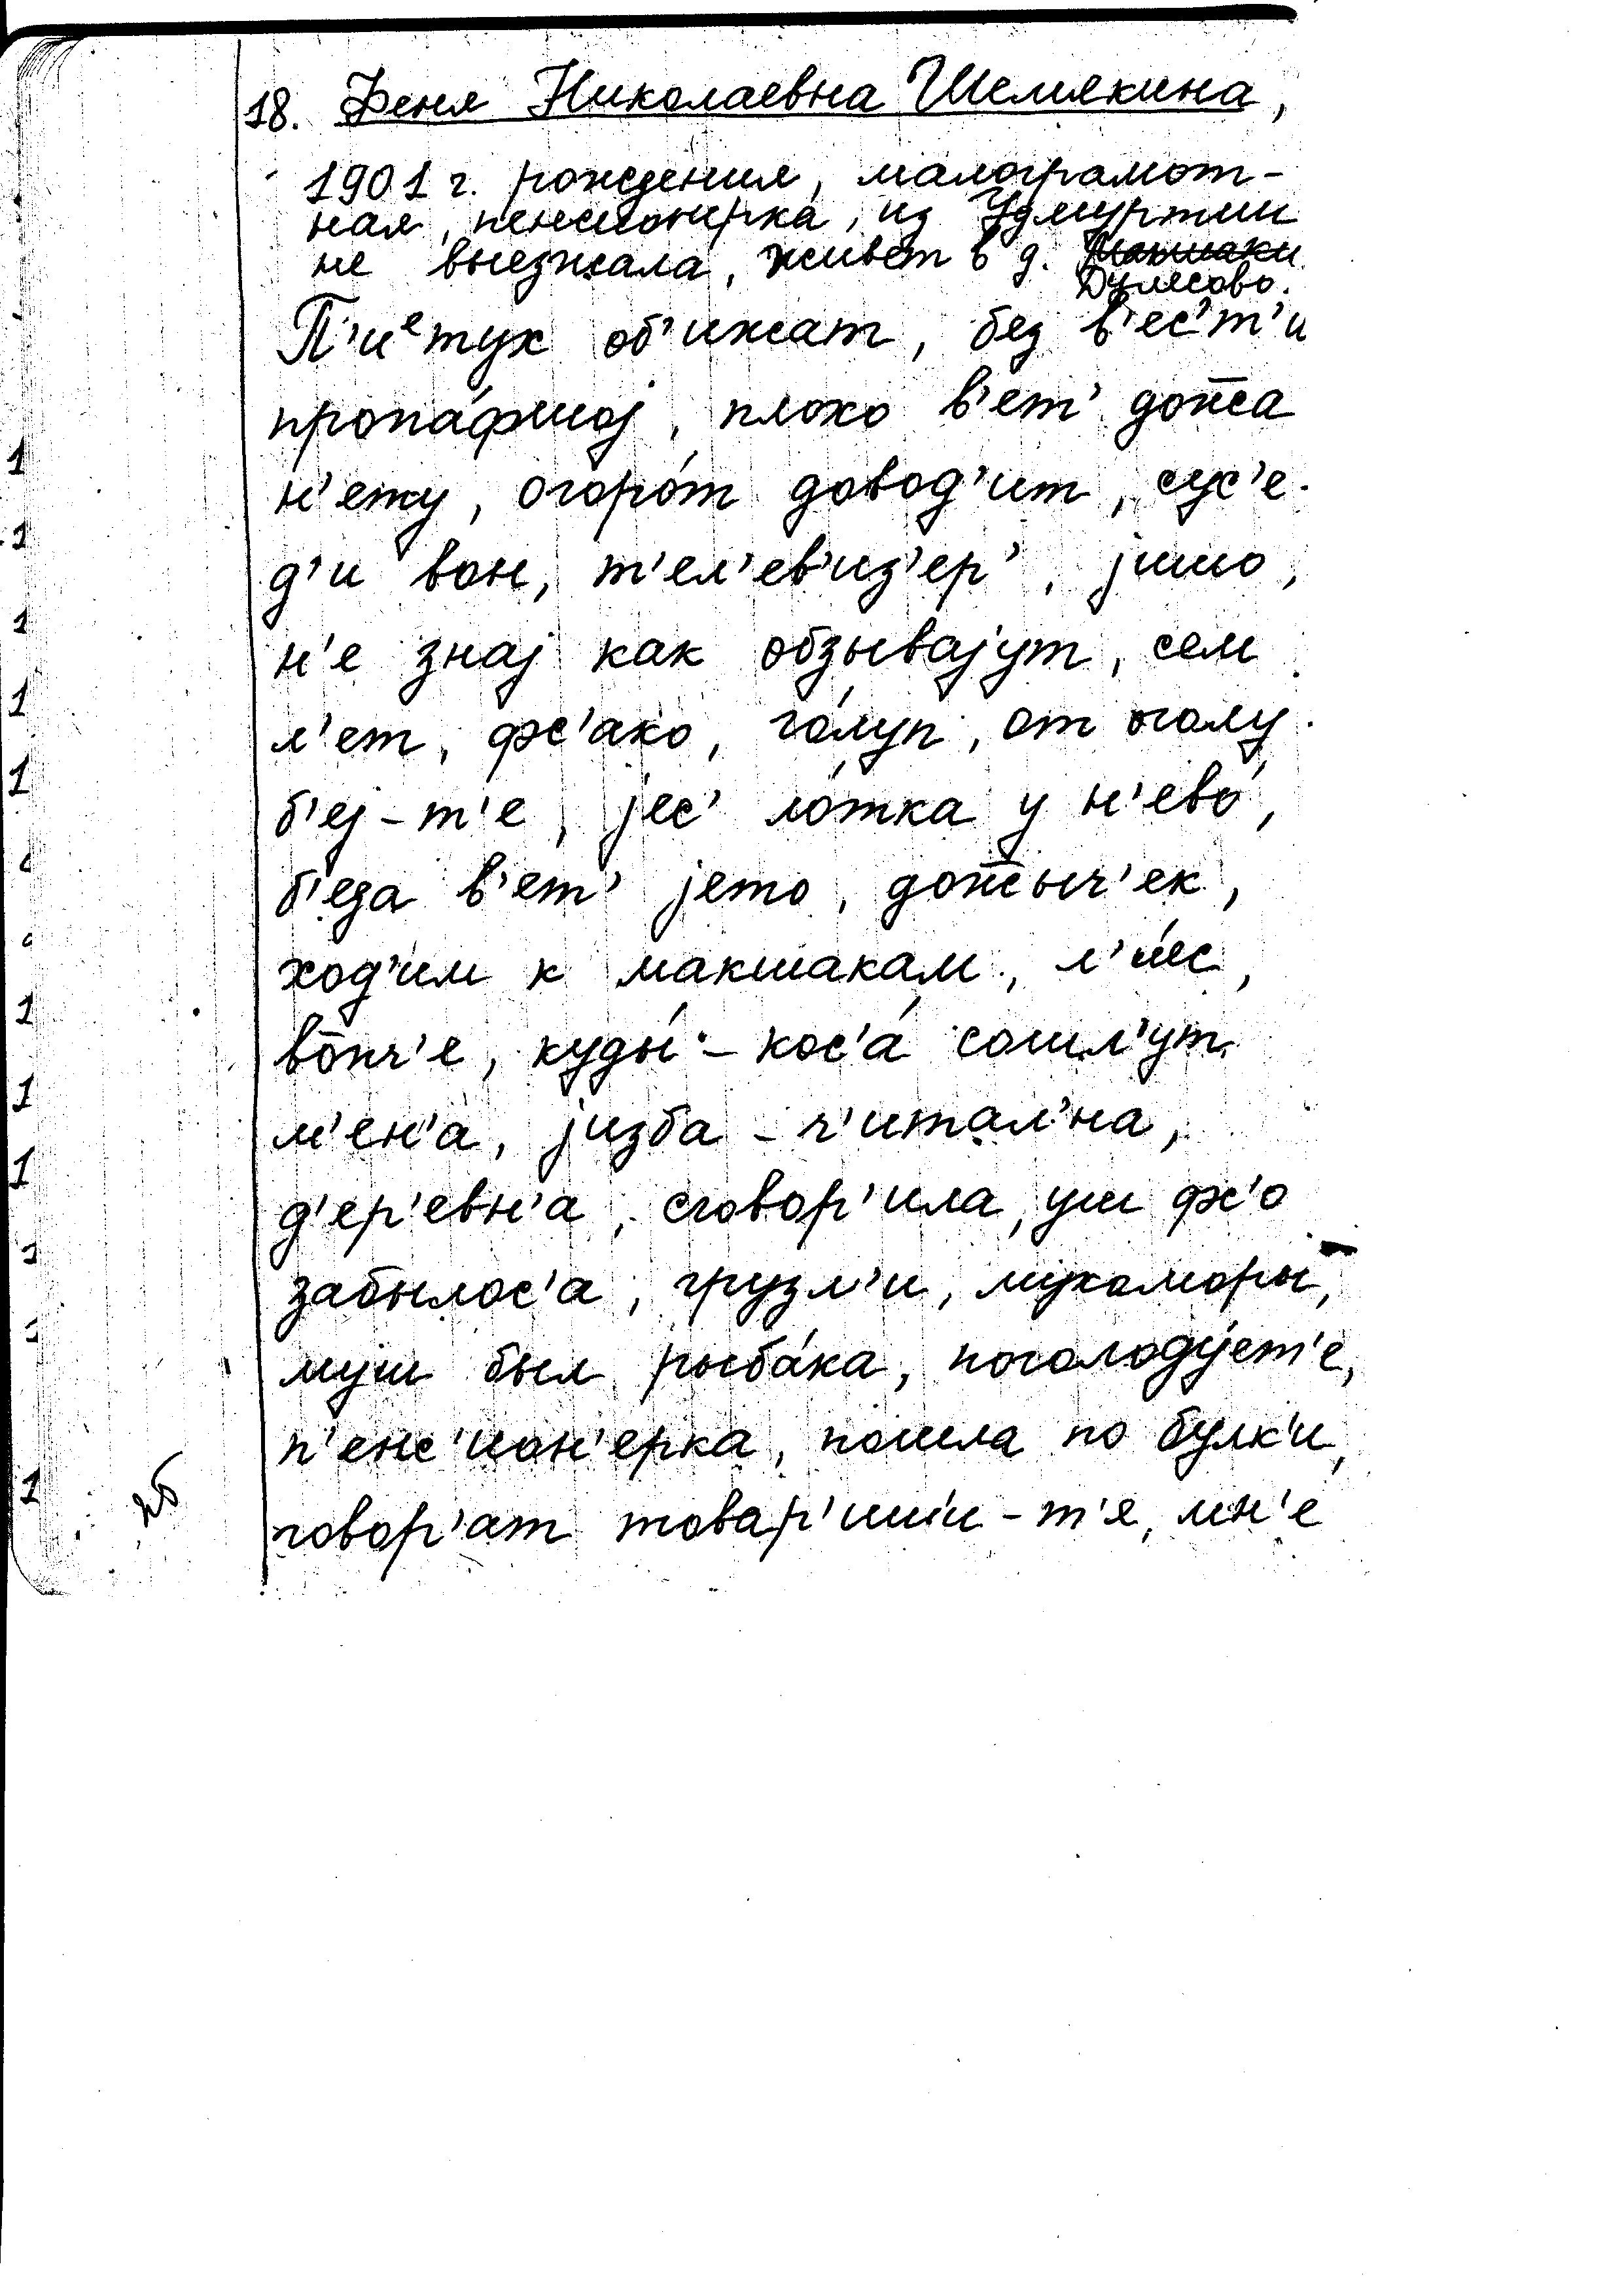 18. Феня Николаевна Шемякина,
1901 г. рождения, малограмот-
ная, пенсионерка, из Удмуртии
не выезжала, живет в д. Макшаки
Дулесово.
П'иᵉтух об'ижат, без в'ес'т'и
пропа́фшој, плохо в'ет' допса
н'ежу, огоро́т довод'ит, сус'е-
д'и вон, т'ел'ев'из'ер', јишо,
н'е знај как обзывајут, сем
л'ет, фс'ако, го́луп, от голу-
б'еј-т'е, јес' ло́тка у н'ево́,
б'еда в'ет' јето, допсыч'ек,
ход'им к макшакам, л'ие́с,
вопч'е, куды́-кос'а́ сошл'ут
м'ен'а, јизба-ч'итал'на,
д'ер'евн'а, сговор'ила, уш фс'о
забылос'а, грузл'и, мухоморы,
муш был рыба́ка, поголодујет'е,
п'енс'ион'ерка, пошла по булк'и,
говор'ат товар'иш'и-т'е, мн'е
1
1
1
1
1
1
1
1
1
1
1
26